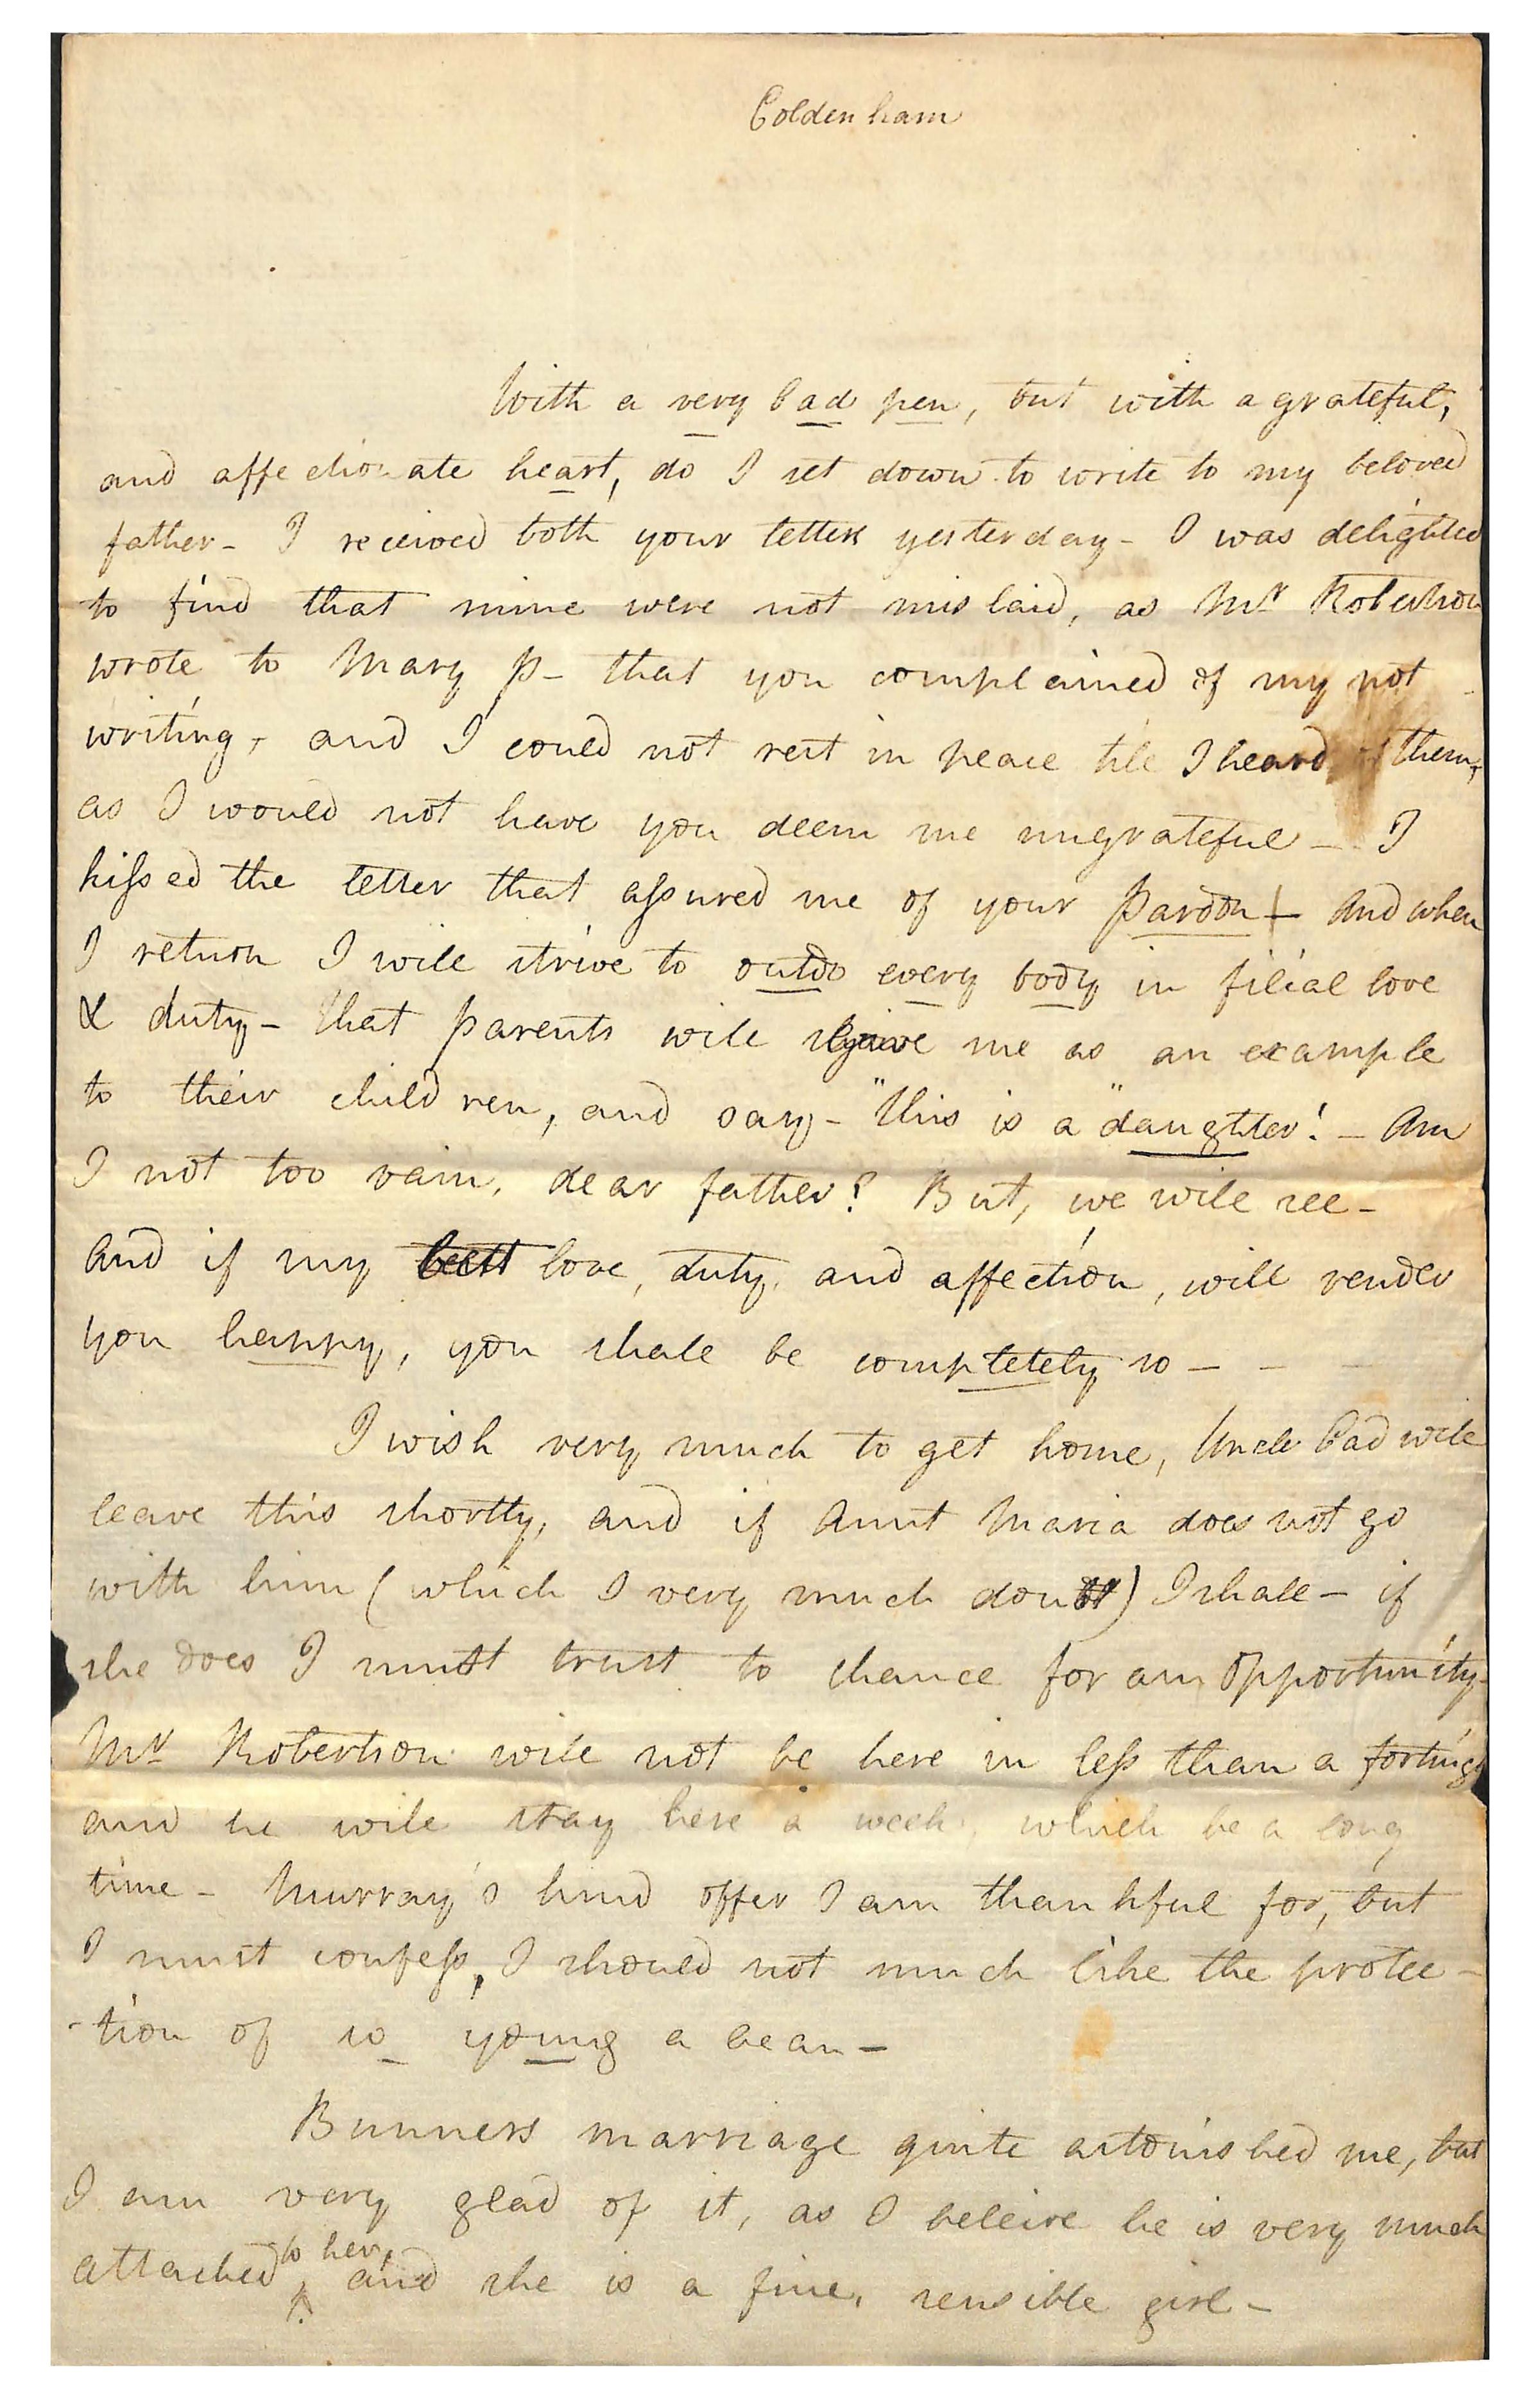 Colden ham
With a very bad pen, but with a grateful,
and affectionate heart, do I set down to write to my beloved
father - I received both your letters yesterday - I was delighted
to find that mine were not mislaid, as Mr Robertson
wrote to Mary P - that you complained of my not
writing, and I could not rest in peace till I heard of them,
as I would not have you deem me ungrateful - I
kissed the letter that assured me of your Pardon - And when
I return I will strive to outdo every body in filial love
& duty - that parents will give me as an example
to their children, and say - "this is a "daughter! - Am
I not too vain, dear father? But, we will see -
And if my love, duty, and affection, will render
you happy, you shall be completely so - - -
I wish very much to get home, Uncle Cad will
leave this shortly, and if Aunt Maria does not go
with him (which I very much doubt) I shall - if
she does I must trust to chance for an opportunity -
Mr Robertson will not be here in less than a fortnigh
and he will stay here a week, which be a long
time - Murray's kind offer I am thankful for, but
I must confess, I should not much like the protec-
-tion of so young a beau -
Bunners marriage quite astonished me, but
I am very glad of it, as I beleive he is very much
attached to her, and she is a fine, sensible girl -